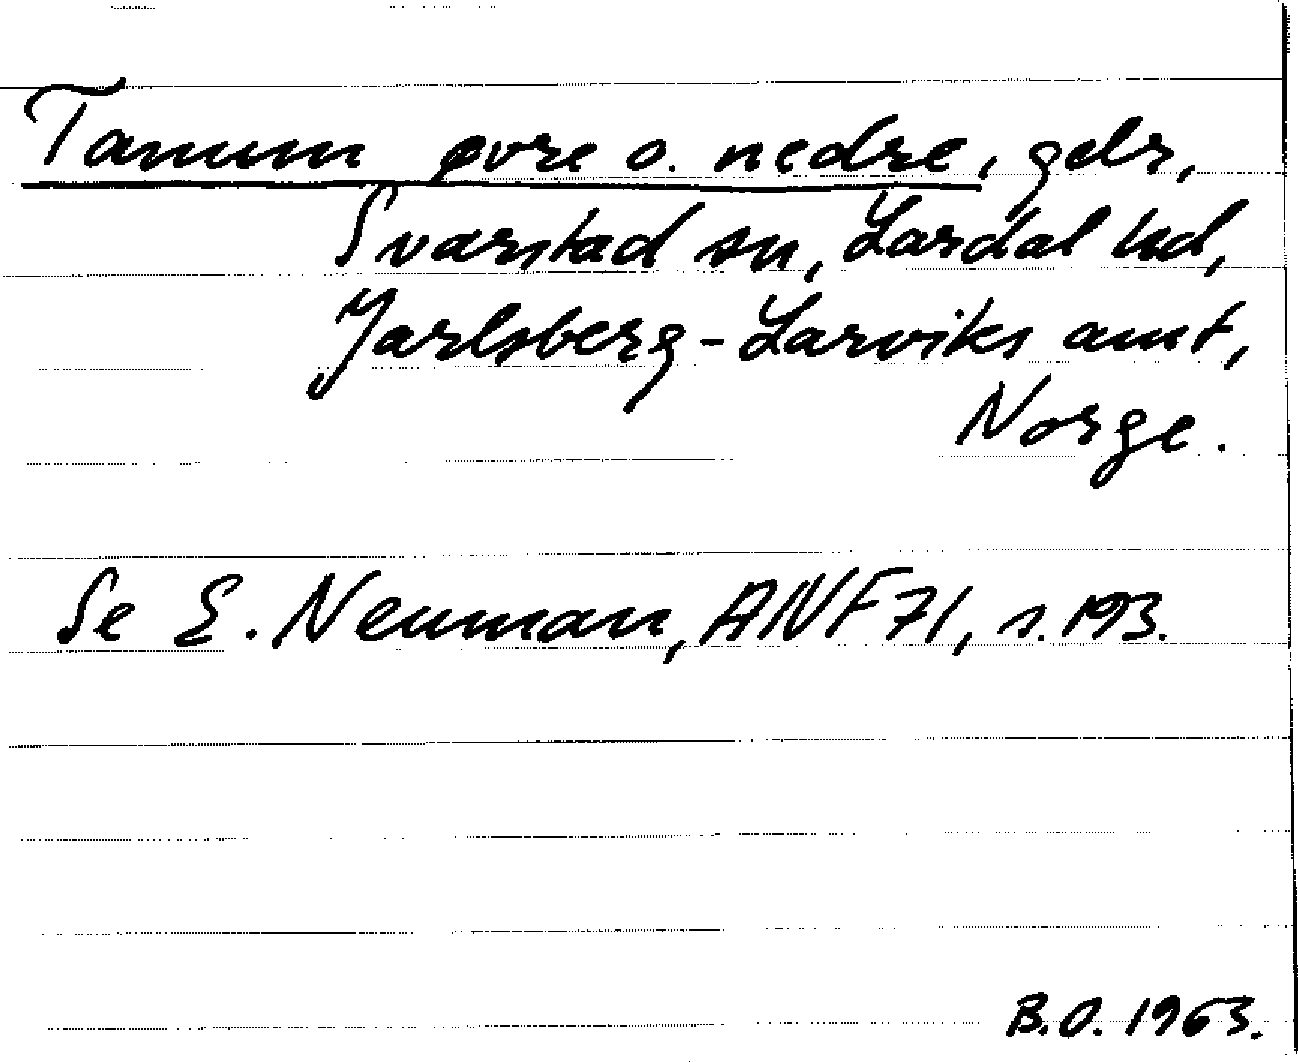 Tanum øvre o. nedre, gdr,
Svarstad sn, Lardal hd,
Jarlsberg-Larviks amt,
Norge.
Se E. Neuman, ANF 71, s. 193.
B.O. 1963.